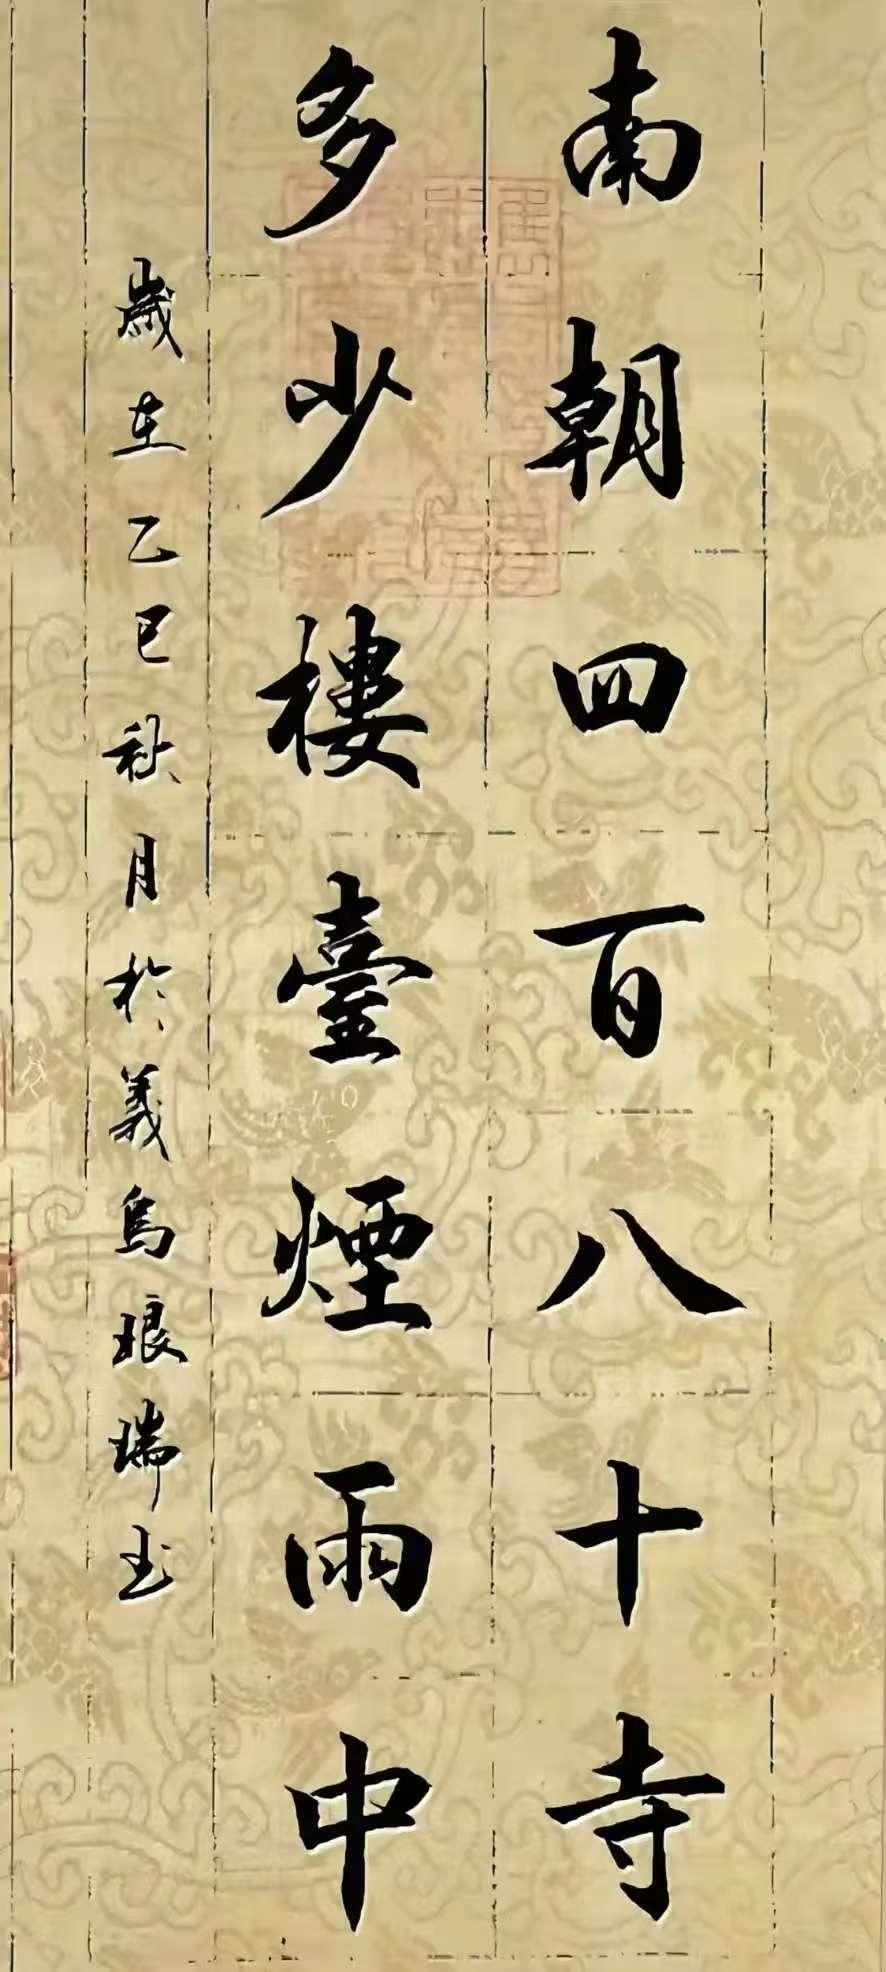 南朝四百八十寺
多少樓臺煙雨中
歲在乙巳秋月於義烏琅瑞书